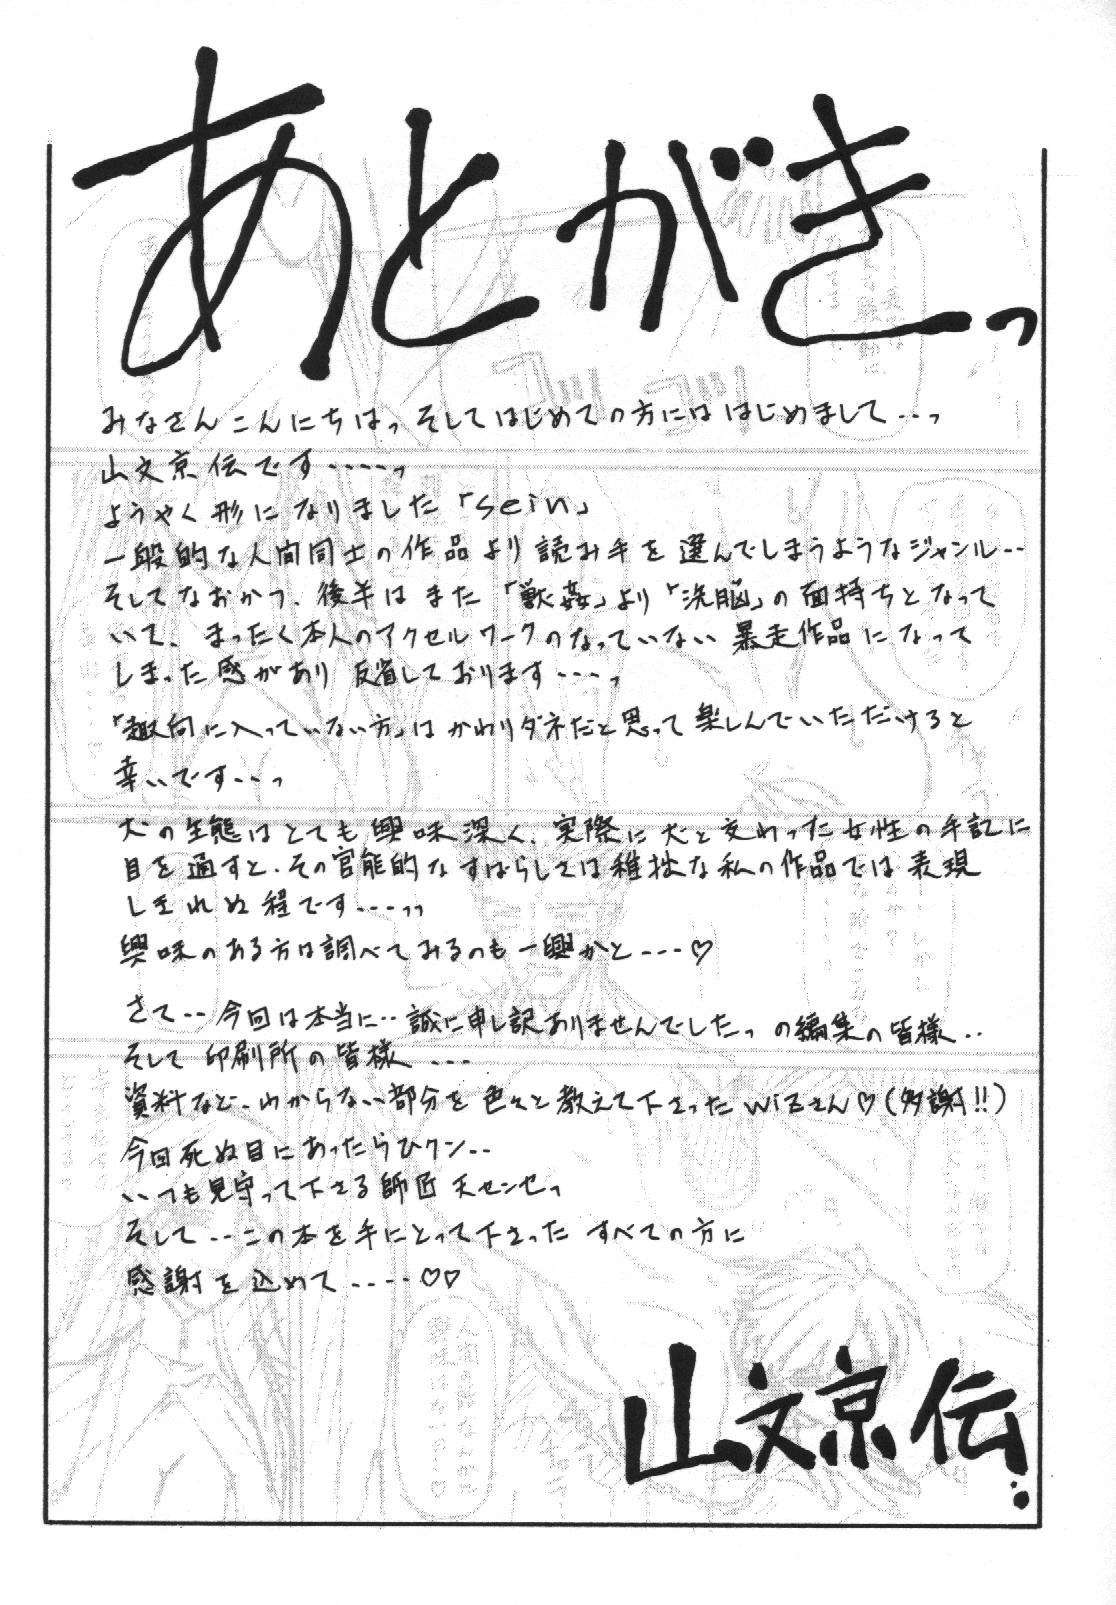 あとがきっ
みなさんこんにちはっそしてはじめての方にははじめまして…っ
山文京伝です‥‥っ
ようやく形になりました「sein」
一般的な人間同士の作品より読み手を選んでしまうようなジャンル‥
そしてなおかつ、後半はまた「獣姦」より「洗脳」の面持ちとなって
いて、まったく本人のアクセルワークのなっていない暴走作品になって
しまった感があり反省しております‥‥っ
「趣向に入っていない方」はかわりダネだと思って楽しんでいただけると
幸いです‥‥っ
犬の生態はとても興味深く、実際に犬と交わった女性の手記に
目を通すと、その官能的なすばらしさは稚拙な私の作品では表現
しきれぬ程です‥‥っっ
興味のある方は調べてみるのも一興かと‥‥♡
さて‥今回は本当に‥誠に申し訳ありませんでしたっの編集の皆様‥
そして印刷所の皆様‥‥
資料など、わからない部分を色々と教えて下さったwizさん♡(多謝!!)
今回死ぬ目にあったらひクン‥
いつも見守って下さる師匠天センセっ
そして‥この本を手にとって下さったすべての方に
感謝を込めて‥‥♡♡
山文京伝